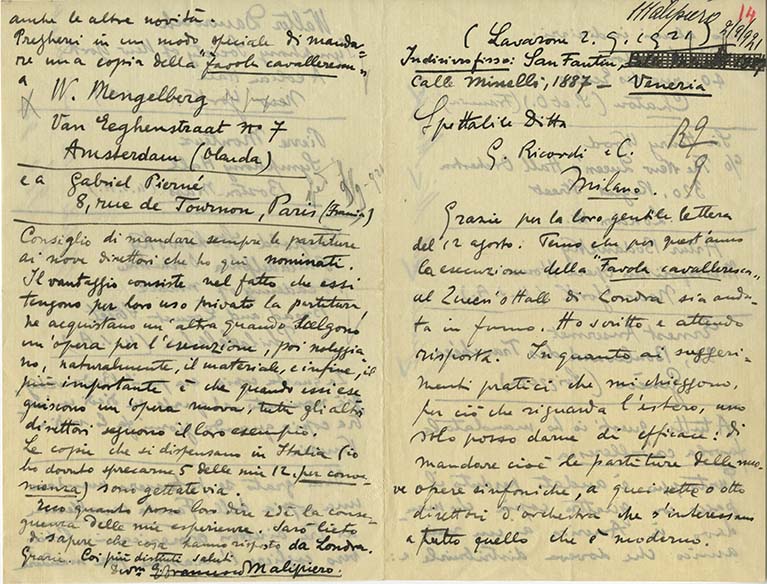 Malipiero
14
(Lavarone 2. 9. 1921)
2/9/921
Indirizzo fisso: San Fantin,
Calle Minelli, 1887 - Venezia
Spettabile Ditta
G. Ricordi e C.
Milano.
Grazie per la loro gentile lettera
del 12 agosto. Temo che per quest'anno
la esecuzione della "Favola cavalleresca"
al Queen's Hall di Londra sia anda-
ta in fumo. Ho scritto e attendo
risposta. In quanto ai suggeri-
menti pratici che mi chieggono,
per ciò che riguarda l'estero, uno
solo posso darne di efficace: di
mandare cioè le partiture delle nuo-
ve opere sinfoniche, a quei sette o otto
direttori d'orchestra che s'interessano
a tutto quello che è moderno.
anche le altre novità
Pregherei in un modo speciale di manda-
re una copia della "favola cavalleresca"
a
W. Mengelberg
Van Eeghenstraat no 7
Amsterdam (Olanda)
e a Gabriel Pierné
8, rue de Tournon, Paris (Francia)
Consiglio di mandare sempre le partiture
ai nove direttori che ho qui nominati.
Il vantaggio consiste nel fatto che essi
tengono per loro uso privato la partitura,
ne acquistano un'altra quando scelgono
un'opera per l'esecuzione, poi noleggia-
no, naturalmente, il materiale, e infine, il
più importante è che quando essi ese-
guiscono un'opera nuova, tutti gli altri
direttori seguono il loro esempio.
Le copie che si dispensano in Italia (io
ho dovuto sprecarne 5 delle mie 12, per conve-
nienza) sono gettate via.
Ecco quanto posso loro dire ed è la conse-
guenza delle mie esperienze. Sarò lieto
di sapere che cosa hanno risposto da Londra.
Grazie. Coi più distinti saluti
G. Francesco Malipiero.